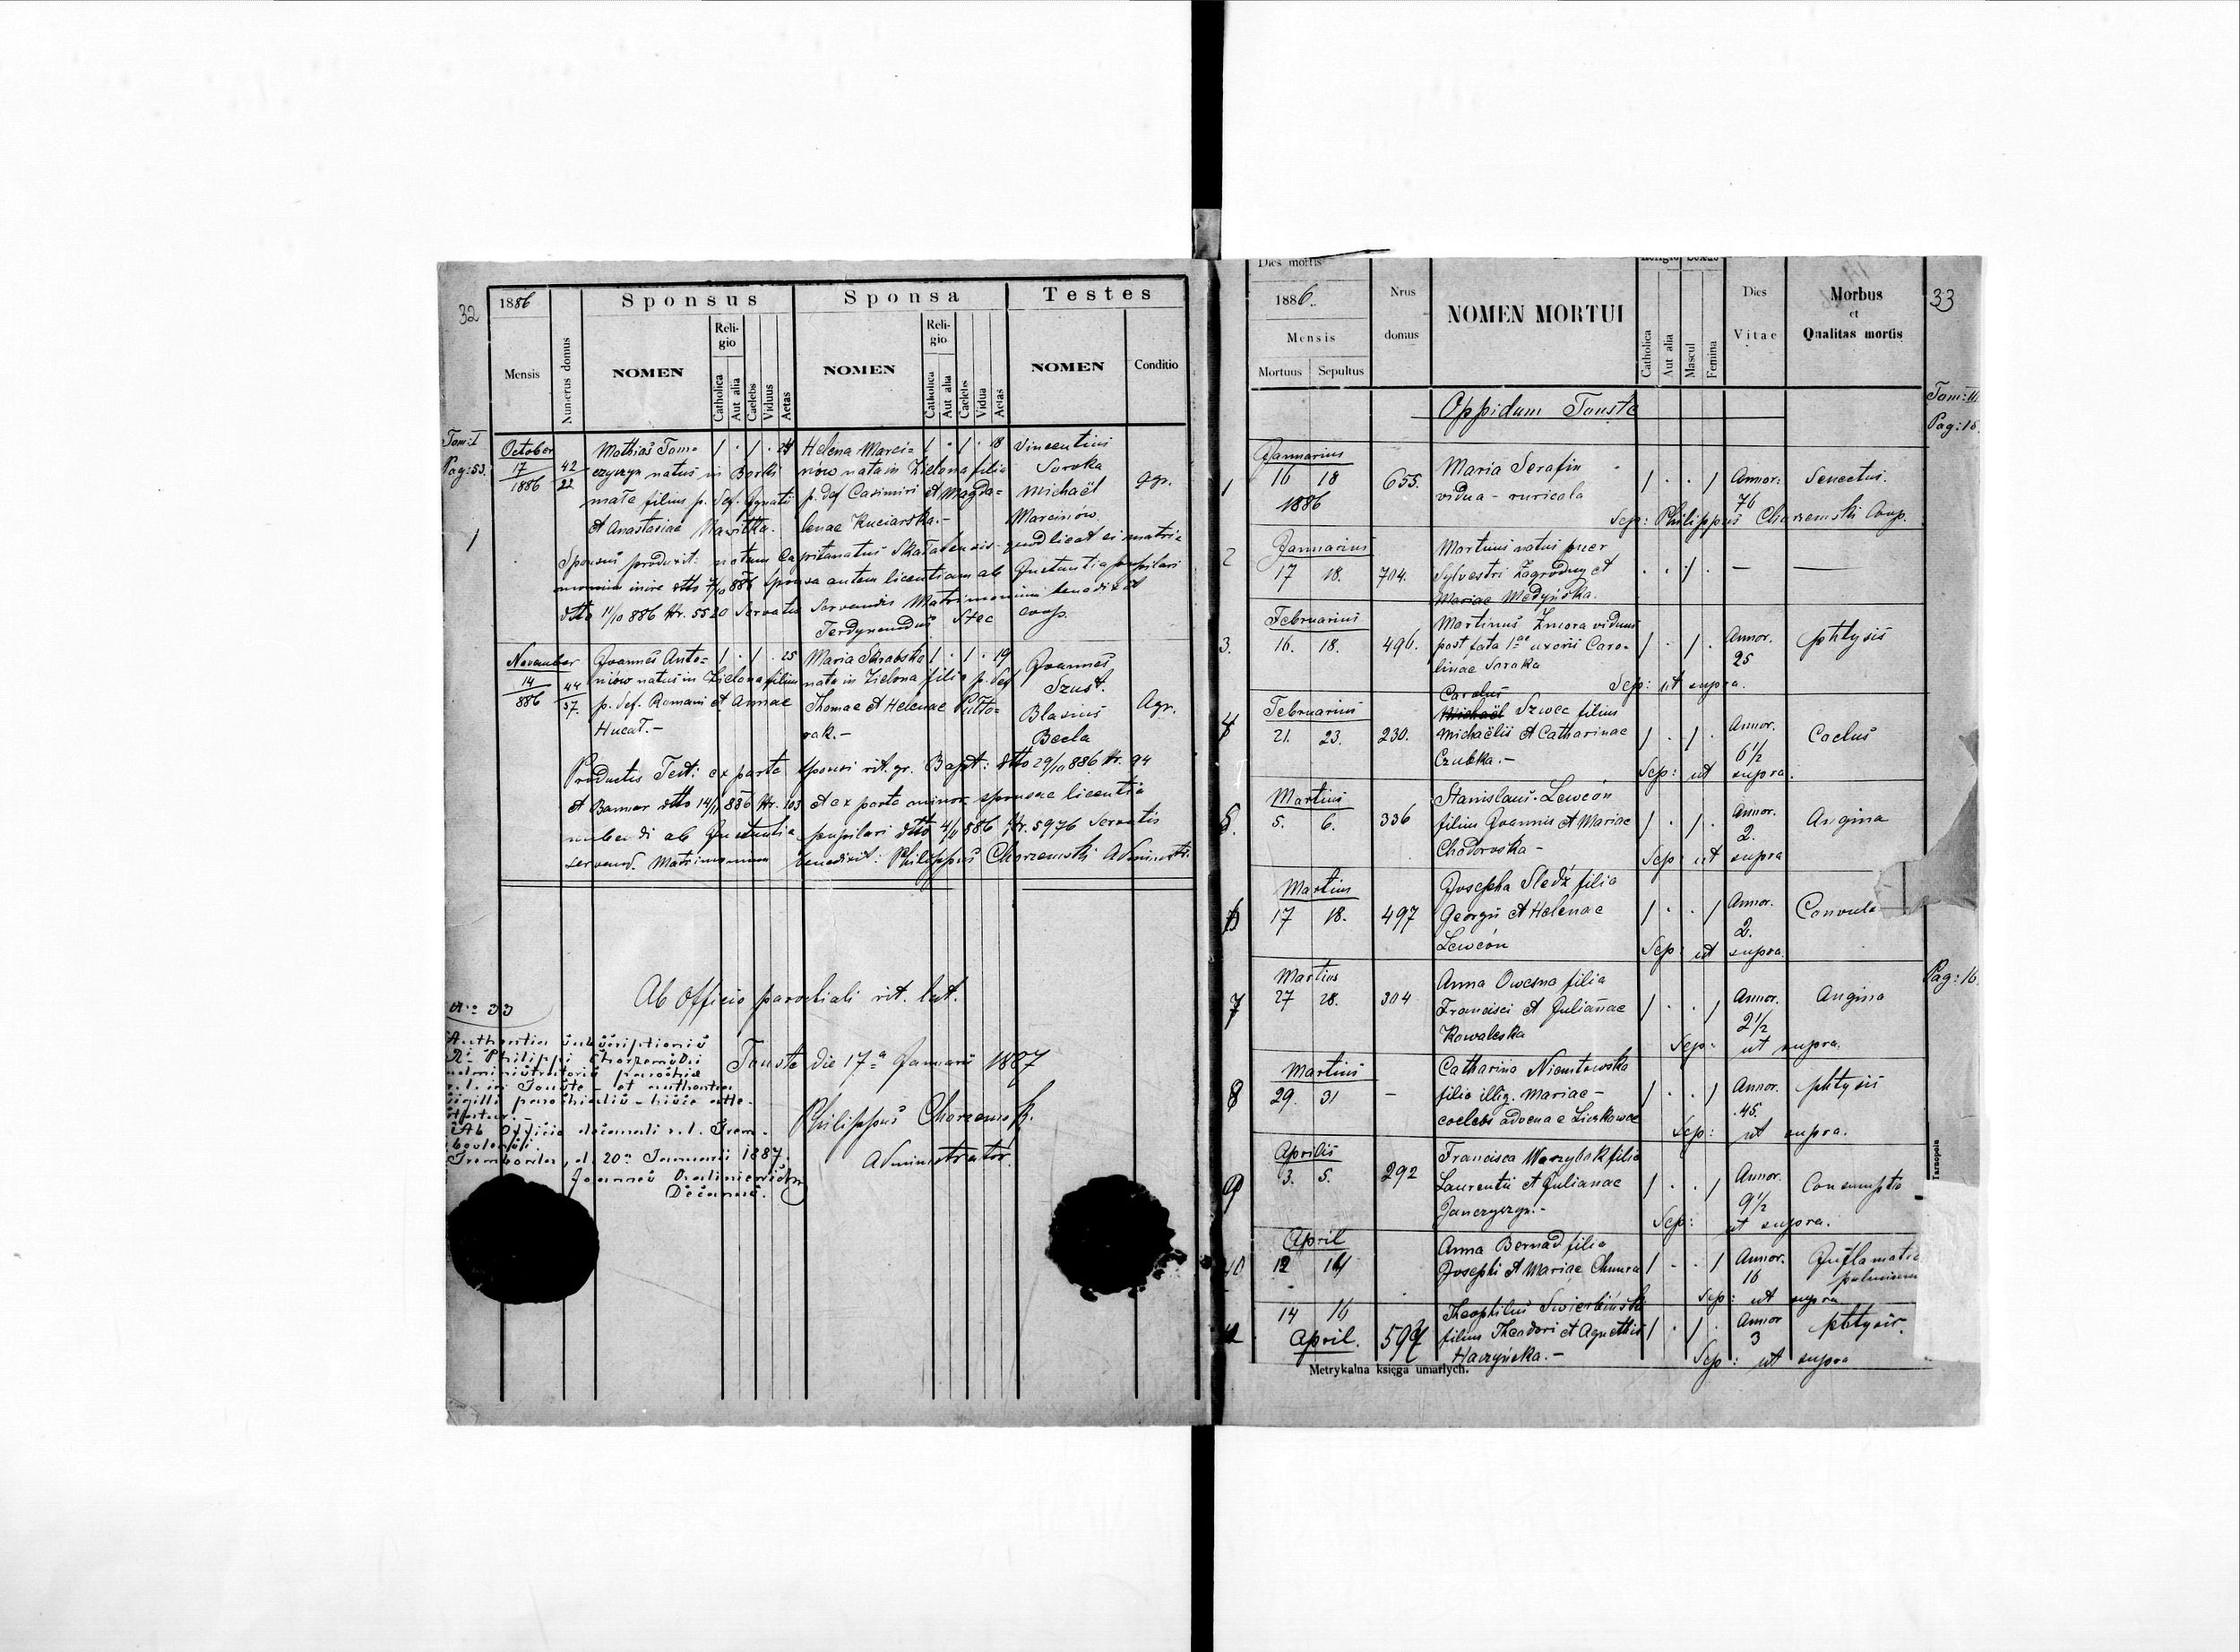 32
1886
Sponsus
Sponsa
Testes
Mensis
Numerus domus
NOMEN
Religio
Catholica
Aut alia
Caelebs
Viduus
Aetas
NOMEN
Religio
Catholica
Aut alia
Caelebs
Vidua
Aetas
NOMEN
Conditio
Tom: I
Pag: 53.
1
October
17
1886
42
22
Mathias Tom-
czyszyn natus in Borki
mała filius p. def. Ignatii
et Anastasiae Mawitka.
/ . / . 24
Helena Marci-
niów nata in Zielona filia
p. def Casimiri et Magda-
lenae Kuciarska.-
/ . / . 18
Vincentius
Soroka
Michaël
Marciniów
agr.
Sponsus produxit: notam Capitanatus Skałatensis quod liceat ei matri-
monium inire dtto 7/10 886 Sponsa autem licentiam ab Instantia pupilari
dtto 11/10 886 Nr. 5520 Servatis Servandis Matrimonium benedixit
Ferdynandus Stec coop.
November
14
886
44
57.
Joannes Anto-
niów natus in Zielona filius
p. def. Romani et Annae
Hucał.-
/ . / . 25
Maria Skrabska
nata in Zielona filia p. def
Thomae et Helenae Pułto-
rak.-
/ . / . 19
Joannes
Szust.
Blasius
Becla
Agr.
Productis Test: ex parte sponsi rit. gr. Bapt: dtto 29/10 886 Nr. 94
et Bannor dtto 14/11 886 Nr. 103 et ex parte minor. sponsae licentia
nubendi ab Instantia pupilari dtto 4/11 886 Nr. 5976 Servatis
servand. Matrimonium benedixit: Philippus Chorzemski Administr.
Ab Officio parochiali rit. lat.
Touste die 17a Januarii 1887
Philippus Chorzemski.
Administrator.
No 33
Authentia subscriptionis
Rdi Philippi Chorzemski
administratoris parochiae
r. l. in Touste - et authentia
sigilli parochialis - hisce atte-
statur.-
Ab Officio decanali r. l. Trem-
bovlensi
Trembovlae, d. 20a Januarii 1887.
Joannes
Decanus.
33
Dies mortis
1886.
Mensis
Mortuus
Sepultus
Nrus
domus
NOMEN MORTUI
Religio
Sexus
Catholica
Aut alia
Mascul
Femina
Dies
Vitae
Morbus
et
Qualitas mortis
Tom: III
Pag: 15.
Oppidum Touste
1
Januarius
16 18
1886
655.
Maria Serafin
vidua - ruricola
/ . . /
Annor:
76
Senectus.
Sep: Philippus Chorzemski Coop.
2
Januarius
17 18.
704.
Mortuus natus puer
Sylvestri Zagrodny et
Mariae Medyńska.
. . / .
—
—
3.
Februarius
16. 18.
496.
Martinus Zmora viduus
post fata 1ae uxoris Caro-
linae Soroka
/ . / .
Annor.
25
phtysis
Sep: ut supra.
4
Februarius
21. 23.
230.
Carolus
Michaël Szwec filius
Michaëlis et Catharinae
Czubka.-
/ . / .
Annor.
6 1/2
Caelus
Sep: ut supra.
5.
Martius
5. 6.
336
Stanislaus Lewcón
filius Joannis et Mariae
Chodorowska -
/ . / .
Annor.
2.
Angina
Sep: ut supra
6
Martius
17 18.
497
Josepha Śledź filia
Georgii et Helenae
Lewcón
/ . . /
Annor.
2.
Convuls
Sep: ut supra.
Pag: 16.
7
Martius
27 28.
304
Anna Owcsna filia
Francisci et Julianae
Kowalska
/ . . /
Annor.
2 1/2
Angina
Sep: ut supra.
8
Martius
29. 31
-
Catharina Niemtowska
filia illig. Mariae -
coelebs advena e Liczkowce
/ . . /
Annor.
45.
phtysis
Sep: ut supra.
9
Aprilis
3. 5.
292
Francisca Warzybok filia
Laurentii et Julianae
Janczyszyn.-
/ . . /
Annor.
9 1/2
Consumptio
Sep: ut supra.
10
April
12 14
Anna Bernad filia
Josephi et Mariae Chmura
/ . . /
Annor.
16
Inflamatio
pulmonum
Sep: ut supra
14 16
April.
597
Theophilus Swierbiński
filius Theodori et Agnethis
Haczyńska.-
/ . / .
Annor
3
phtysis.
Sep: ut supra
Metrykalna księga umarłych.
Tarnopola